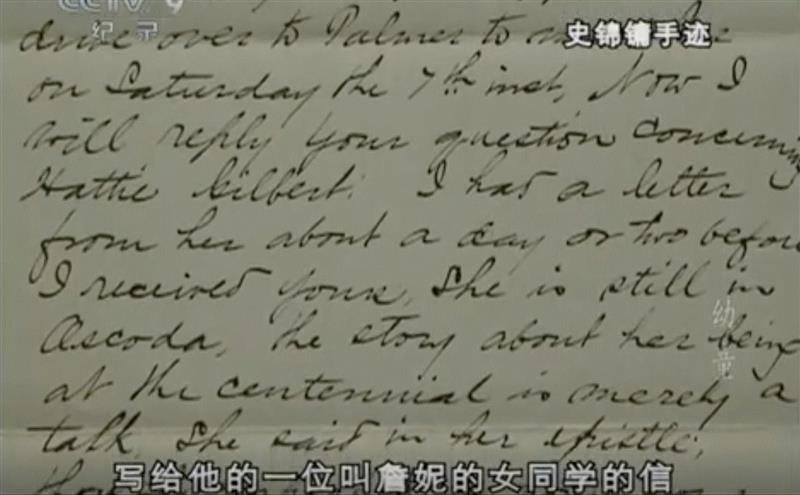 CCTV 9
纪录
史锦镛手迹
drive over to Palmer to
on Saturday the 7th inst, Now I
will reply your question concerning
Hattie Gilbert. I had a letter
from her about a day or two before
I received yours, She is still in
Ascoda, the story about her being
at the centennial is merely a
talk. She said in her epistle,
幼童
写给他的一位叫詹妮的女同学的信